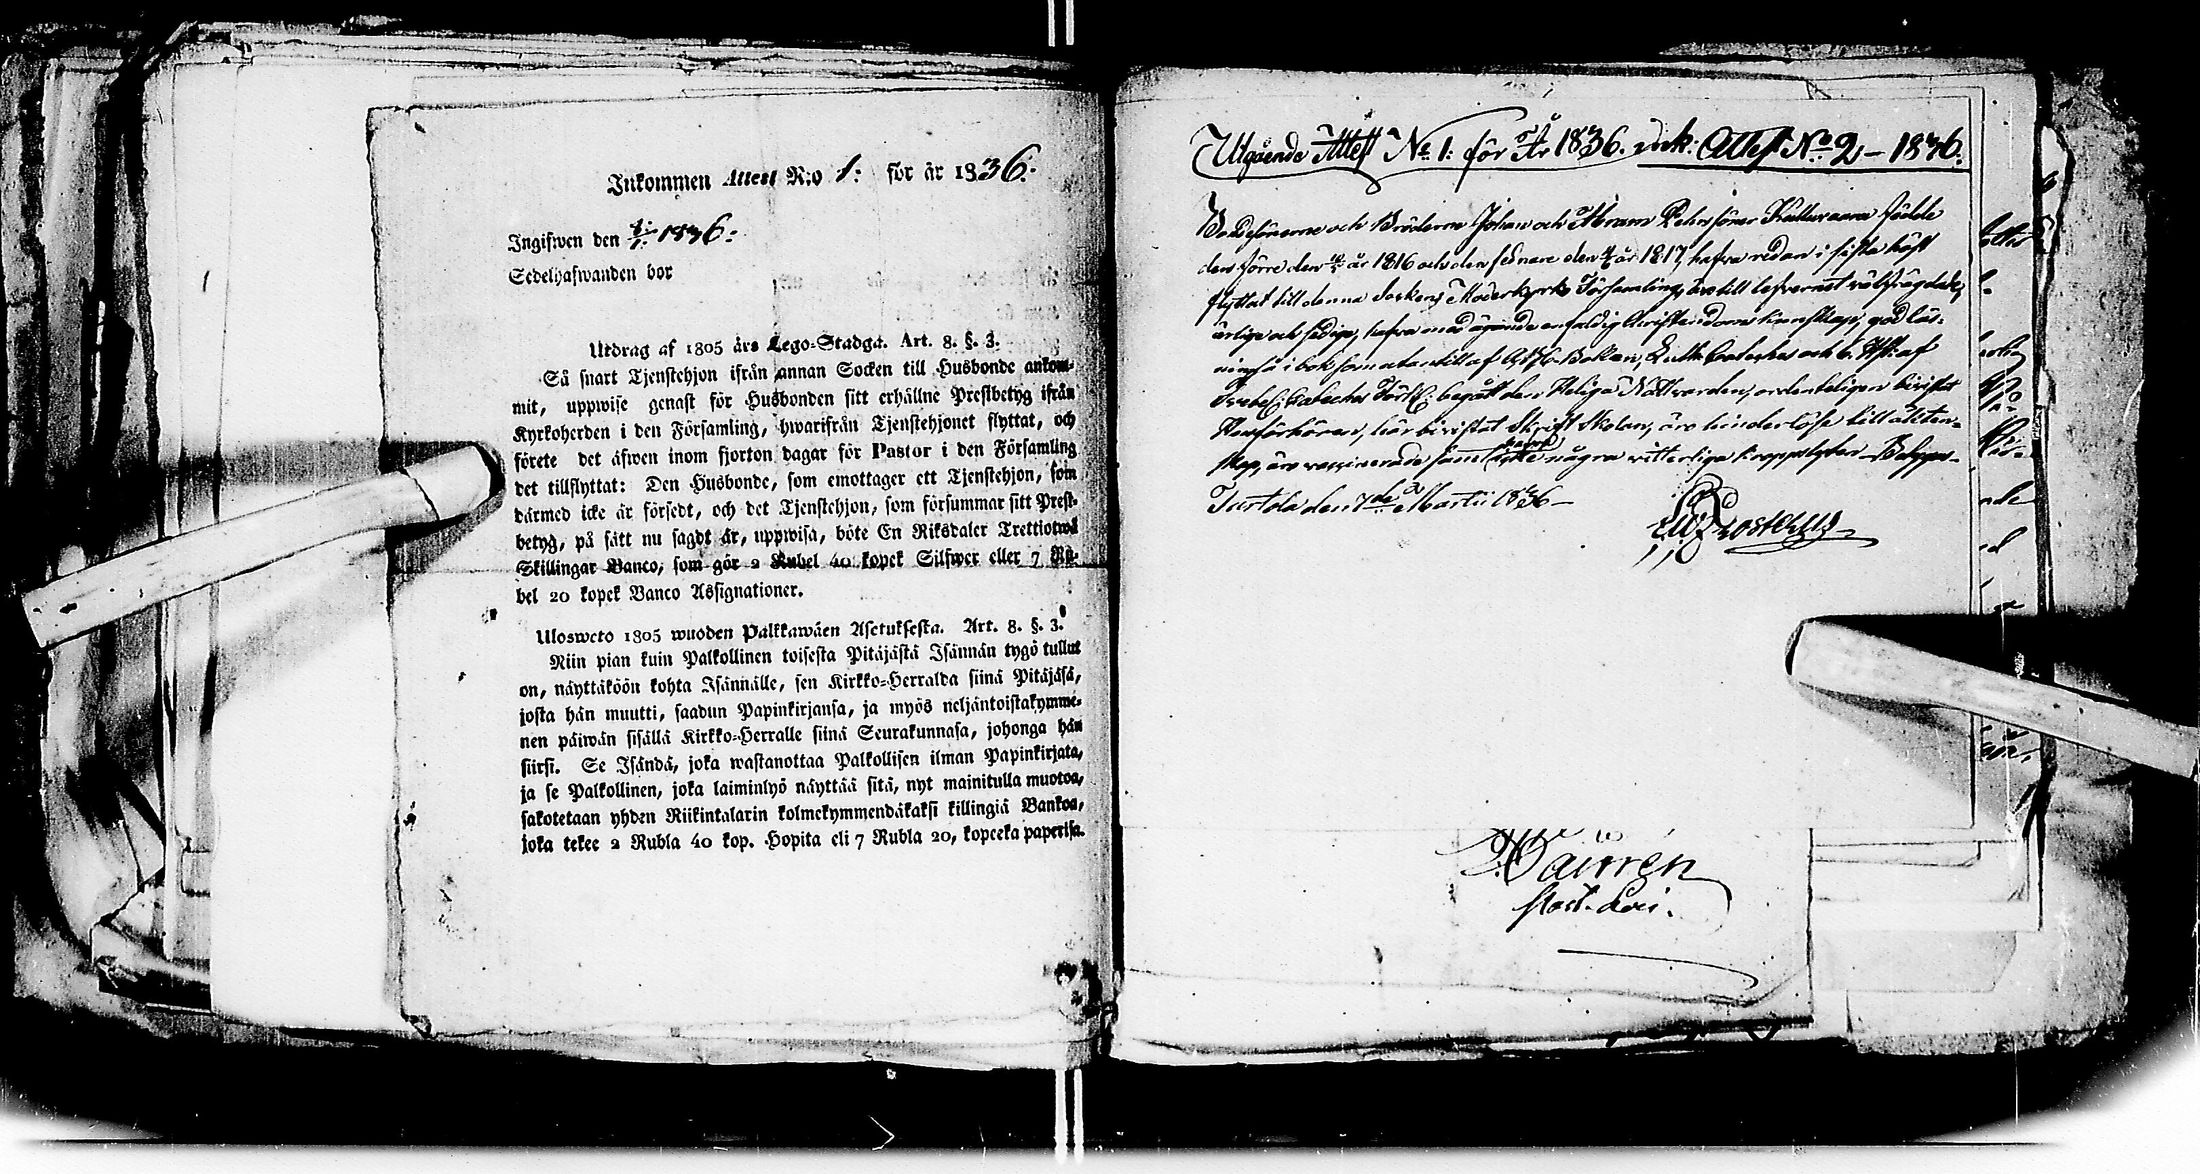 Inkommen Attest N:o 1: för år 1836:
Ingifwen den 1836:
Sedelhafwanden bor
Utdrag af 1805 års Lego-Stadga. Art. 8. §. 3.
Så snart Tjenstehjon ifrån annan Socken till Husbonde ankom-
mit, uppwise genast för Husbonden sitt erhållne Prestbetyg ifrån
Kyrkoherden i den Församling, hwarifrån Tjenstehjonet flyttat, och
förete det äfwen inom fjorton dagar för Pastor i den Församling
det tillflyttat: Den Husbonde, som emottager ett Tjenstehjon, som
därmed icke är försedt, och det Tjenstehjon, som försummar sitt Prest-
betyg, på sätt nu sagdt är, uppwisa, böte En Riksdaler Trettiotwå
Skillingar Banco, som gör 2 Rubel 40 kopek Silfwer eller 7 Ru-
bel 20 kopek Banco Assignationer.
Ulosweto 1805 wuoden Palkkawäen Asetuksesta. Art. 8. §. 3.
Niin pian kuin Palkollinen toisesta Pitäjästä Isännän tygö tullut
on, näyttäköön kohta Isännälle, sen Kirkko-Herralda siinä Pitäjäsä,
josta hän muutti, saadun Papinkirjansa, ja myös neljäntoistakymme-
nen päiwän sisällä Kirkko-Herralle siinä Seurakunnasa, johonga hän
siirsi. Se Isändä, joka wastanottaa Palkollisen ilman Papinkirjata,
ja se Palkollinen, joka laiminlyö näyttää sitä, nyt mainitulla muotoa,
sakotetaan yhden Riikintalarin kolmekymmendäkaksi killingiä Bankoa,
joka tekee 2 Rubla 40 kop. Hopita eli 7 Rubla 20, kopeeka paperisa.
Utgående Attest No 1: för År 1836. ink: Attest No 2 - 1836.
Bondesönerne och Bröderne Johan och Abram Pehrssöner födde
den förre den år 1816 och den sednare den år 1817, hafva redan i sista höst
flyttat till denna Sockens Moderkyrko Församling, äro till lefvernet välfrägdade,
ärlige och sedige, hafva med ägande enfaldig Christendoms kunskap, god läs-
ning så i bok som utantill af A.B.C. Bokan, Luth. Cateches och 6. af
Cateches begått den Heliga Nattvarden, ordenteligen bivistat
Läseförhören, här bivistat Skrift Skolan, äro hinderlöse till äkten-
skap, äro vaccinerade samt hafva icke några kroppslyten
den 7de Martii 1836 -